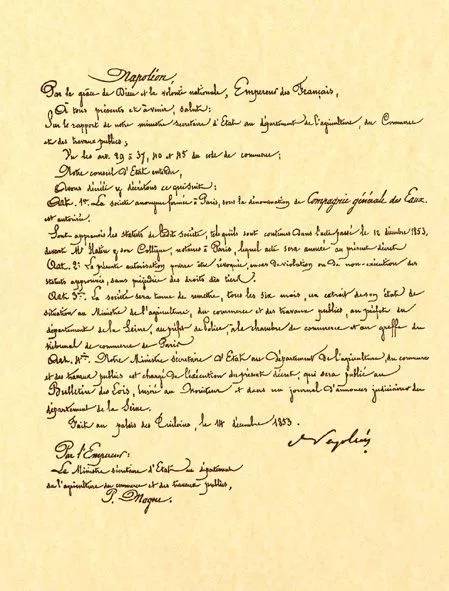 Napoléon,
Par la grâce de Dieu et la volonté nationale, Empereur des Français,
A tous présents et à venir, salut:
Sur le rapport de notre ministre secrétaire d'Etat au département de l'agriculture, du Commerce
et des travaux publics;
Vu les art. 29 à 37, 40 et 45 du code de commerce;
Notre conseil d'Etat entendu,
Avons décidé et décrétons ce qui suit:
Art. 1er. La société anonyme formée à Paris, sous la dénomination de Compagnie générale des Eaux
est autorisée.
Sont approuvés les statuts de dit société, tels qu'ils sont contenus dans l'acte passé le 12 décembre 1853,
devant Me Hatin et son Collègue, notaires à Paris, lequel acte sera annexé au présent décret
Art. 2: La présente autorisation pourra être révoquée, en cas de violation ou de non-exécution des
statuts approuvés, sans préjudice des droits des tiers.
Art. 3e. La société sera tenue de remettre, tous les six mois, un extrait de son état de
situation au Ministre de l'agriculture, du commerce et des travaux publics, au préfet du
département de la Seine, au préfet de Police, à la chambre de commerce et au greffe du
tribunal de commerce de Paris
Art. 4e. Notre Ministre secrétaire d'Etat au département de l'agriculture, du commerce
et des travaux publics est chargé de l'exécution du présent décret, qui sera publié au
Bulletin des Lois, inséré au Moniteur et dans un journal d'annonces judiciaires du
département de la Seine.
Fait au palais des Tuileries, le 14 décembre 1853.
Napoléon
Par l'Empereur:
Le Ministre secrétaire d'Etat au département
de l'agriculture du commerce et des travaux publics,
P. Magne.